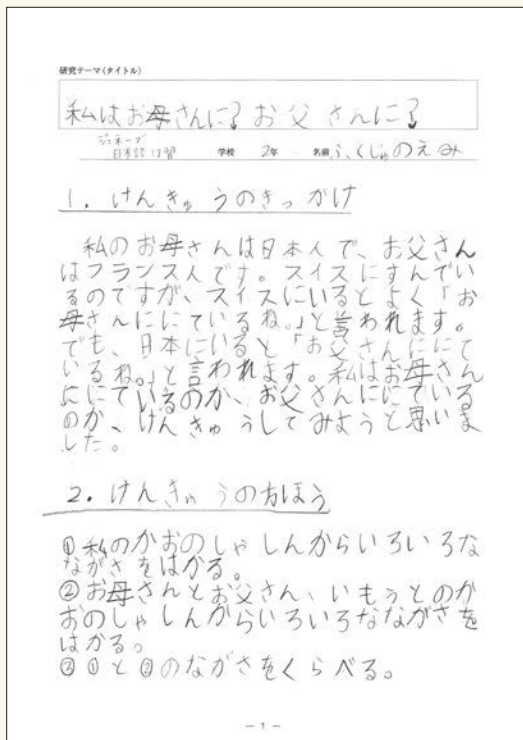 研究テーマ(タイトル)
私はお母さんに?お父さんに?
ジュネーブ
日本語補習 学校 2年 名前 ふくじゅのえみ
1. けんきゅうのきっかけ
私のお母さんは日本人で、お父さん
はフランス人です。スイスにすんでい
るのですが、スイスにいるとよく「お
母さんににているね。」と言われます。
でも、日本にいると「お父さんににて
いるね。」と言われます。私はお母さん
ににているのか、お父さんににている
のか、けんきゅうしてみようと思いま
した。
2. けんきゅうの方ほう
①私のかおのしゃしんからいろいろな
ながさをはかる。
②お母さんとお父さん、いもうとのか
おのしゃしんからいろいろなながさを
はかる。
③①と②のながさをくらべる。
― 1 ―